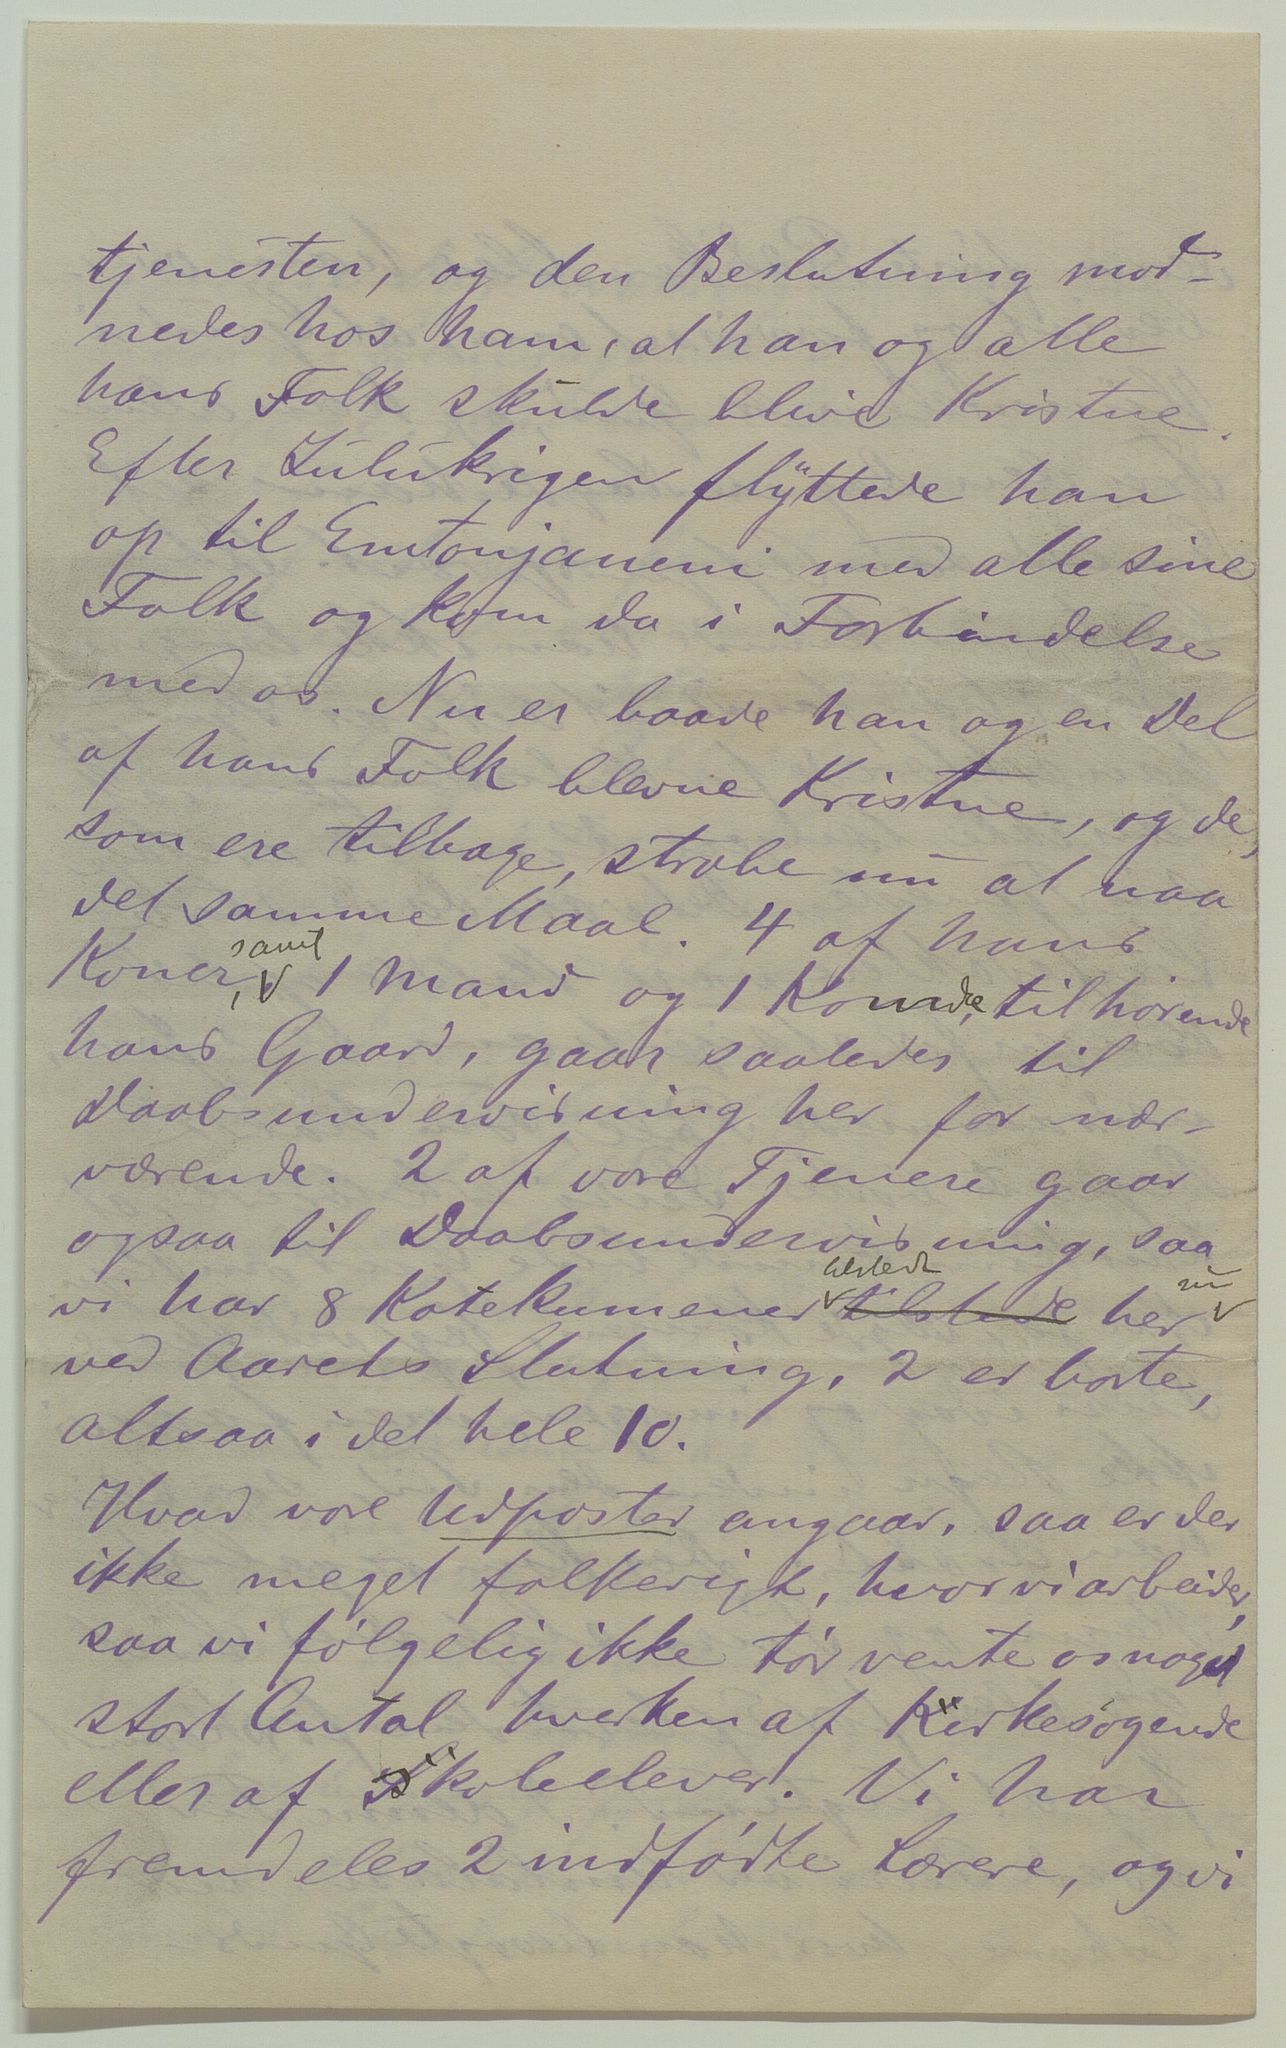 tjenesten, og den Beslutning mod-
nedes hos ham, at han og alle
hans Folk skulde blive Kristne.
Efter Zulukrigen flyttede han
op til Emtonjaneni med alle sine
Folk og kom da i Forbindelse
med os. Nu er baade han og en Del
af hans Folk blevne Kristne, og de,
som ere tilbage, stræbe nu at naa
det samme Maal. 4 af hans
Koner, samt 1 Mand og 1 Kvinde, tilhørende
hans Gaard, gaar saaledes til
Daabsundervisning her for nær-
værende. 2 af vore Tjenere gaar
ogsaa til Daabsundervisning, saa
vi har 8 Katekumener tilstede her nu
ved Aarets Slutning, 2 er borte,
altsaa i det hele 10.
Hvad vore Udposter angaar, saa er der
ikke meget folkerigt, hvor vi arbeider,
saa vi følgelig ikke tør vente os noget
stort Antal hverken af Kirkesøgende
eller af Skoleelever. Vi har
fremdeles 2 indfødte Lærere, og vi